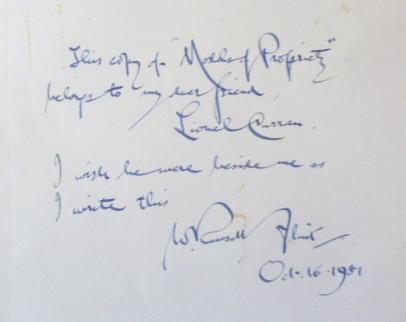 This copy of "Models of Propriety"
belongs to my dear friend
Lionel Curran.
I wish he were beside me as
I write this
W. Russell Flint
Oct. 16. 1951